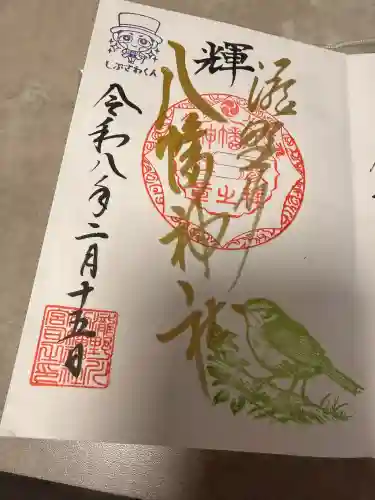 輝
瀧野川
八幡神社
令和八年二月十五日
しぶさわくん